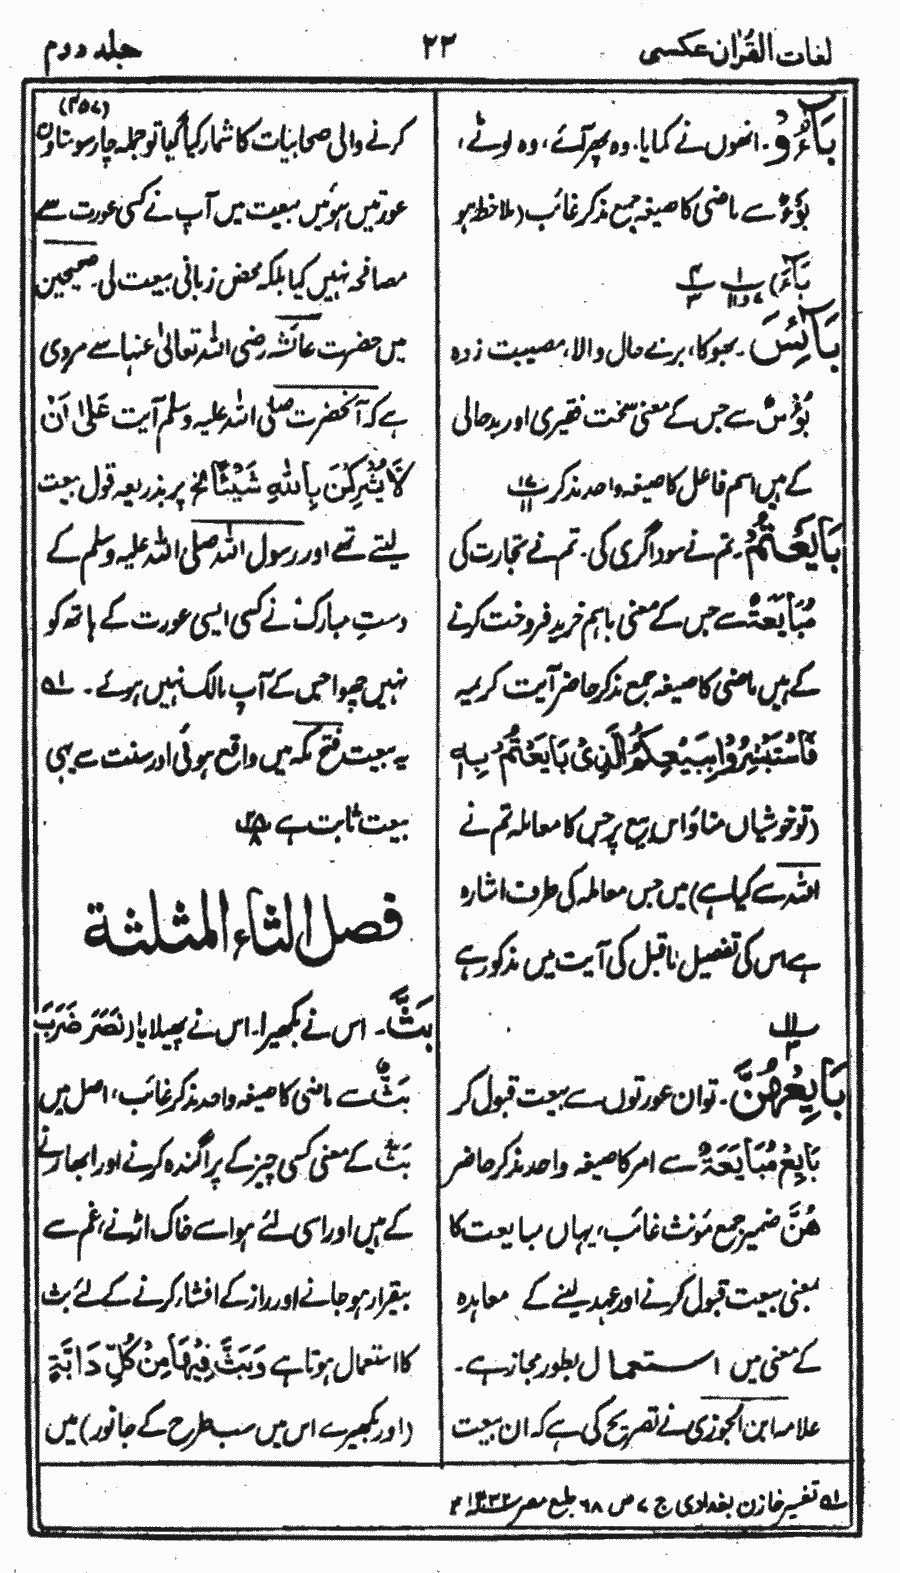 لغات القرآن عکسی
۲۳
جلد دوم
بَآءُوْ۔ انھوں نے کمایا۔ وہ پھر آئے، وہ لوٹے،
بَوْءٌ سے ماضی کا صیغہ جمع مذکر غائب (ملاحظہ ہو
بَآءَ)
بَائِسَ۔ بھوکا، برے حال والا، مصیبت زدہ
بُؤْسٌ سے جس کے معنی سخت فقیری اور بدحالی
کے ہیں اسم فاعل کا صیغہ واحد مذکر ۱۷/۱۱
بَايَعْتُمْ۔ تم نے سوداگری کی۔ تم نے تجارت کی
مُبَايَعَةٌ سے جس کے معنی باہم خرید فروخت کرنے
کے ہیں ماضی کا صیغہ جمع مذکر حاضر آیت کریمہ
فَاسْتَبْشِرُوْا بِبَيْعِكُمُ الَّذِيْ بَايَعْتُمْ بِهٖ
(تو خوشیاں مناؤ اس بیع پر جس کا معاملہ تم نے
اللہ سے کیا ہے) میں جس معاملہ کی طرف اشارہ
ہے اس کی تفصیل ماقبل کی آیت میں مذکور ہے
۱۱/۳
بَايِعْهُنَّ۔ تو ان عورتوں سے بیعت قبول کر
بَايِعْ مُبَايَعَةٌ سے امر کا صیغہ واحد مذکر حاضر
هُنَّ ضمیر جمع مؤنث غائب، یہاں مبایعت کا
معنی بیعت قبول کرنے اور عہد لینے کے معاہدہ
کے معنی میں استعمال بطور مجاز ہے۔
علامہ ابن الجوزی نے تصریح کی ہے کہ ان بیعت
کرنے والی صحابیات کا شمار کیا گیا تو جملہ چار سو ستاون
(۴۵۷)
عورتیں ہوئیں بیعت میں آپ نے کسی عورت سے
مصافحہ نہیں کیا بلکہ محض زبانی بیعت لی۔ صحیحین
میں حضرت عائشہ رضی اللہ تعالیٰ عنہا سے مروی
ہے کہ آنحضرت صلی اللہ علیہ وسلم آیت عَلٰى اَنْ
لَّا يُشْرِكْنَ بِاللّٰهِ شَيْئًا الخ پر بذریعہ قول بیعت
لیتے تھے اور رسول اللہ صلی اللہ علیہ وسلم کے
دستِ مبارک نے کسی ایسی عورت کے ہاتھ کو
نہیں چھوا جس کے آپ مالک نہیں ہوئے۔ ۱؎
یہ بیعت فتح مکہ میں واقع ہوئی اور سنت سے یہی
بیعت ثابت ہے ۲۸/۸
فصل الثاء المثلثة
بَثَّ۔ اس نے بکھیرا۔ اس نے پھیلایا (نَصَرَ ضَرَبَ)
بَثٌّ سے ماضی کا صیغہ واحد مذکر غائب، اصل میں
بَثٌّ کے معنی کسی چیز کے پراگندہ کرنے اور ابھارنے
کے ہیں اور اسی لئے ہوا سے خاک اڑنے، غم سے
بیقرار ہوجانے اور راز کے افشاء کرنے کے لئے بث
کا استعمال ہوتا ہے وَبَثَّ فِيْهَا مِنْ كُلِّ دَابَّةٍ
(اور بکھیرے اس میں سب طرح کے جانور) میں
۱؎ تفسیر خازن بغدادی ج ۷ ص ۶۸ طبع مصر